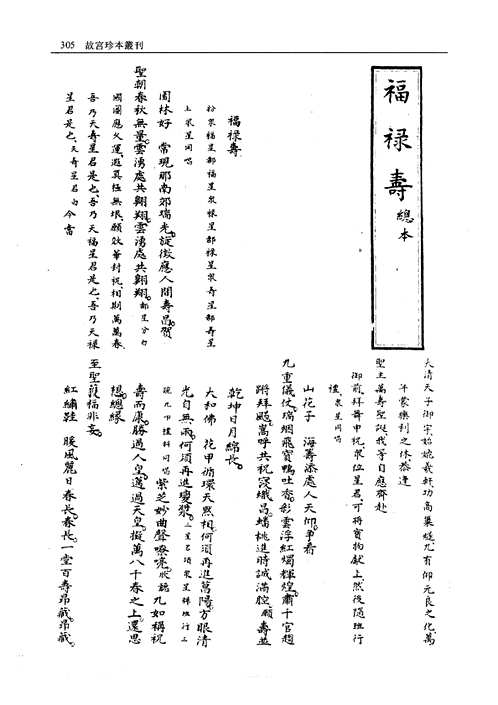 305 故宮珍本叢刊
福禄壽 總本
福祿壽
扮衆福星部福星衆祿星部祿星衆壽星部壽星
上衆星同唱
園林好 常現那南郊瑞光。說徵應人間壽昌。賀
聖朝春秋無量。雲湧處共翺翔。雲湧處共翺翔。部星分白
國運遐真恆無垠願效華封祝相期萬萬春
吾乃天壽星君是也、吾乃天福星君是也、吾乃天祿
星君是也、天壽星君白今當
大清天子御宇裕媲羲軒功高巢燧九有仰元良之化萬
年蒙樂利之休恭逢
聖主萬壽聖誕我等自應齊赴
御前拜舞申祝衆位星君可將寶物獻上然後隨班行
禮衆星同唱
山花子 海籌添處人天仰。爭看
九重儀仗。瑞烟飛寶鴨吐香。彩雲浮紅燭輝煌。肅千官趨
蹌拜颺。嵩呼共祝熾昌。蟠桃進時誠滿腔。願壽並
乾坤日月綿長。
大和佛 花甲循環天然相。何須再進菖陽。方眼清
光自無兩。何須再進瓊漿。
紫芝妙曲聲嘹喨。九如稱祝
壽而康。勝過人皇。邁過天皇。擬萬八千春之上。還思
想。總緣
至聖護福非妄。
紅繡鞋 暖風麗日春長。春長。一堂百壽昂藏。昂藏。